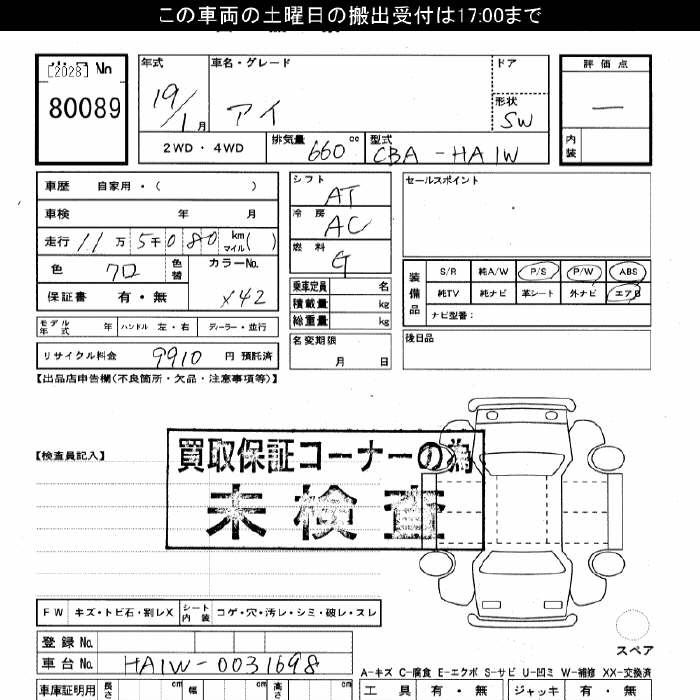 この車両の土曜日の搬出受付は17:00まで
[2028] No
80089
年式 19/1月
車名・グレード アイ
ドア
形状 SW
評価点 —
内装
2WD・4WD 排気量 660 cc 型式 CBA-HA1W
車歴 自家用・( )
車検 年 月
走行 11万5千080 km マイル( )
色 クロ 色替 カラーNo. X42
保証書 有・無
モデル年式 年 ハンドル 左・右 ディーラー・並行
リサイクル料金 9910 円 預託済
シフト AT
冷房 AC
燃料 G
乗車定員 名
積載量 kg
総重量 kg
名変期限 月 日
セールスポイント
装備品 S/R 純A/W P/S P/W ABS
純TV 純ナビ 革シート 外ナビ エアB
ナビ型番:
後日品
【出品店申告欄(不良箇所・欠品・注意事項等)】
【検査員記入】
買取保証コーナーの為
未検査
FW キズ・トビ石・割レX シート内装 コゲ・穴・汚レ・シミ・破レ・スレ
登録No.
車台No. HA1W-0031698
スペア
A-キズ C-腐食 E-エクボ S-サビ U-凹ミ W-補修 XX-交換済
車庫証明用 長さ cm 幅 cm 高さ cm
工具 有・無 ジャッキ 有・無